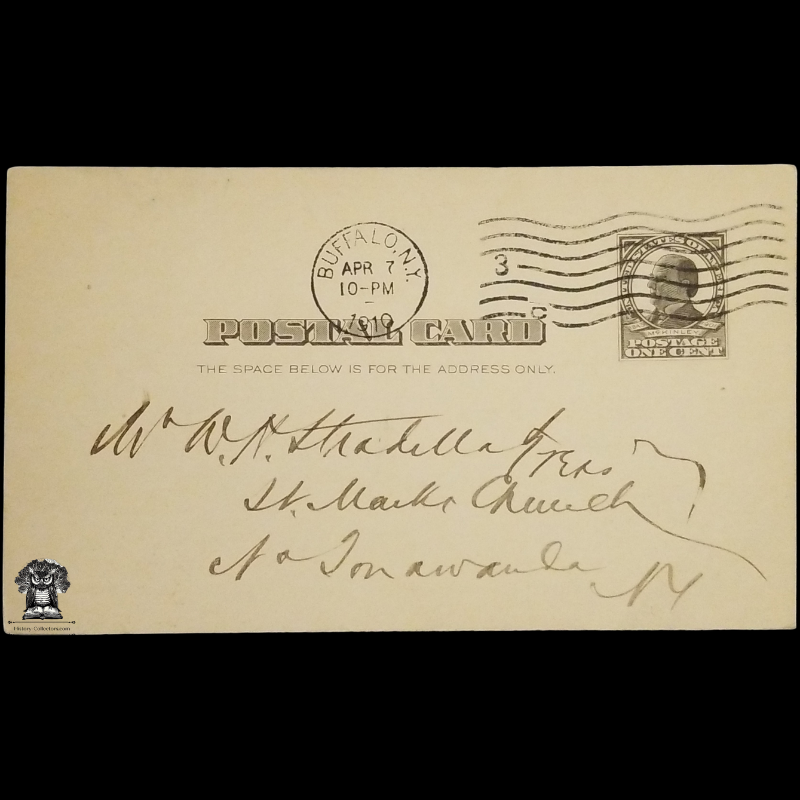 BUFFALO, N.Y.
APR 7
10-PM
1910
3
C
UNITED STATES OF AMERICA
McKINLEY
POSTAGE
ONE CENT
POSTAL CARD
THE SPACE BELOW IS FOR THE ADDRESS ONLY.
Mr W. H. Stradella Treas
St. Marks Church
No Tonawanda N Y
History-Collectors.com